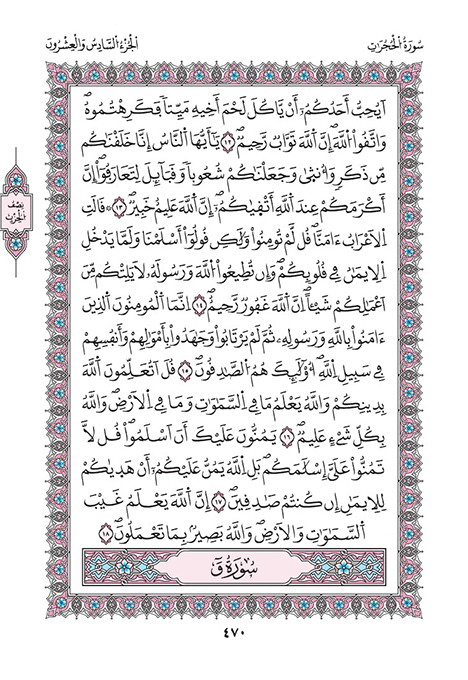 سُورَةُ الْحُجُرَاتِ
الْجُزْءُ السَّادِسُ وَالْعِشْرُونَ
اَيُحِبُّ أَحَدُكُمُۥٓ أَنْ يَّاكُلَ لَحْمَ أَخِيهِ مَيِّتاٗ فَكَرِهْتُمُوهُۖ
وَاتَّقُواْ اللَّهَۖ إِنَّ اَللَّهَ تَوَّابٞ رَّحِيمٞۖ ١٢ يَٰٓأَيُّهَا اَلنَّاسُ إِنَّا خَلَقْنَٰكُم
مِّن ذَكَرٖ وَأُنث۪يٰ وَجَعَلْنَٰكُمْ شُعُوباٗ وَقَبَآئِلَ لِتَعَارَفُوٓاْۖ إِنَّ
أَكْرَمَكُمْ عِندَ اَللَّهِ أَتْق۪يٰكُمُۥٓۖ إِنَّ اَللَّهَ عَلِيمٌ خَبِيرٞۖ ١٣ قَالَتِ
اِلَاعْرَابُ ءَامَنَّاۖ قُل لَّمْ تُومِنُواْ وَلَٰكِن قُولُوٓاْ أَسْلَمْنَا وَلَمَّا يَدْخُلِ
اِلِايمَٰنُ فِے قُلُوبِكُمْۖ وَإِن تُطِيعُواْ اُللَّهَ وَرَسُولَهُۥ لَا يَلِتْكُم مِّنَ
اَعْمَٰلِكُمْ شَيْـٔاًۖ اِنَّ اَللَّهَ غَفُورٞ رَّحِيمٌۖ ١٤ اِنَّمَا اَلْمُومِنُونَ اَلذِينَ
ءَامَنُواْ بِاللَّهِ وَرَسُولِهِۦ ثُمَّ لَمْ يَرْتَابُواْ وَجَٰهَدُواْ بِأَمْوَٰلِهِمْ وَأَنفُسِهِمْ
فِے سَبِيلِ اِللَّهِۖ أُوْلَٰٓئِكَ هُمُ اُلصَّٰدِقُونَۖ ١٥ قُلَ اَتُعَلِّمُونَ اَللَّهَ
بِدِينِكُمْ وَاللَّهُ يَعْلَمُ مَا فِے اِلسَّمَٰوَٰتِ وَمَا فِے اِلَارْضِۖ وَاللَّهُ
بِكُلِّ شَےْءٍ عَلِيمٞۖ ١٦ يَمُنُّونَ عَلَيْكَ أَنَ اَسْلَمُواْۖ قُل لَّا
تَمُنُّواْ عَلَيَّ إِسْلَٰمَكُمۖ بَلِ اِللَّهُ يَمُنُّ عَلَيْكُمُۥٓ أَنْ هَد۪يٰكُمْ
لِلِايمَٰنِ إِن كُنتُمْ صَٰدِقِينَۖ ١٧ إِنَّ اَللَّهَ يَعْلَمُ غَيْبَ
اَلسَّمَٰوَٰتِ وَالَارْضِۖ وَاللَّهُ بَصِيرُۢ بِمَا تَعْمَلُونَۖ ١٨
سُورَةُ قَ
نِصْف
الْحِزْب
٤٧٠